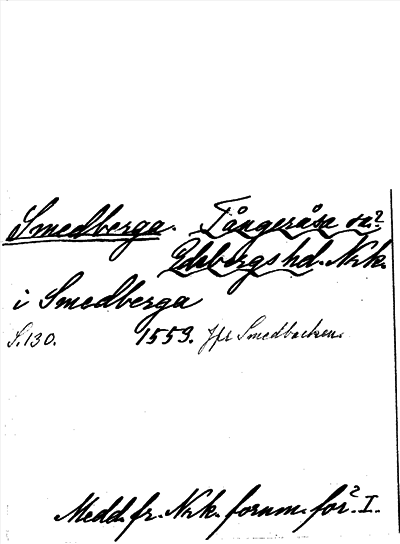 Smedberga. Tångeråsa sn?
Edsbergs hd. Nrk.
i Smedberga
S. 130. 1559. Jfr Smedbacken.
Medd. fr. Nrk. fornm. för? I.